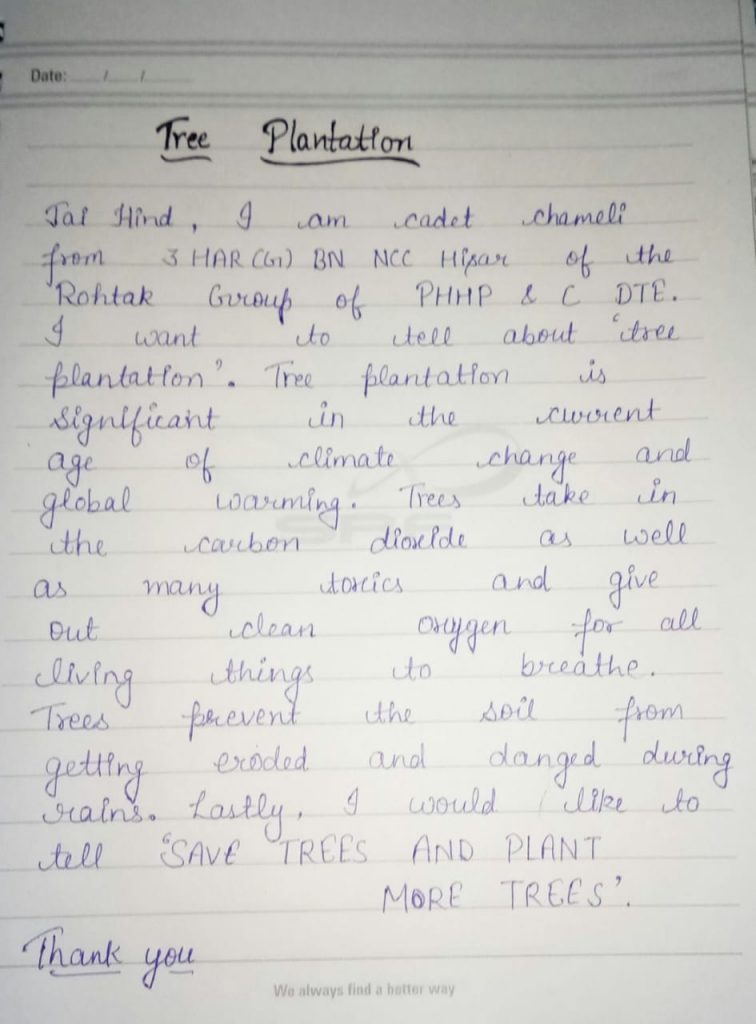 Date: / /
Tree Plantation
Jai Hind, I am cadet chameli
from 3 HAR (G) BN NCC Hisar of the
Rohtak Group of PHHP & C DTE.
I want to tell about 'tree
plantation'. Tree plantation is
significant in the current
age of climate change and
global warming. Trees take in
the carbon dioxide as well
as many toxics and give
out clean oxygen for all
living things to breathe.
Trees prevent the soil from
getting eroded and danged during
rains. Lastly, I would like to
tell 'SAVE TREES AND PLANT
MORE TREES'.
Thank you
We always find a better way